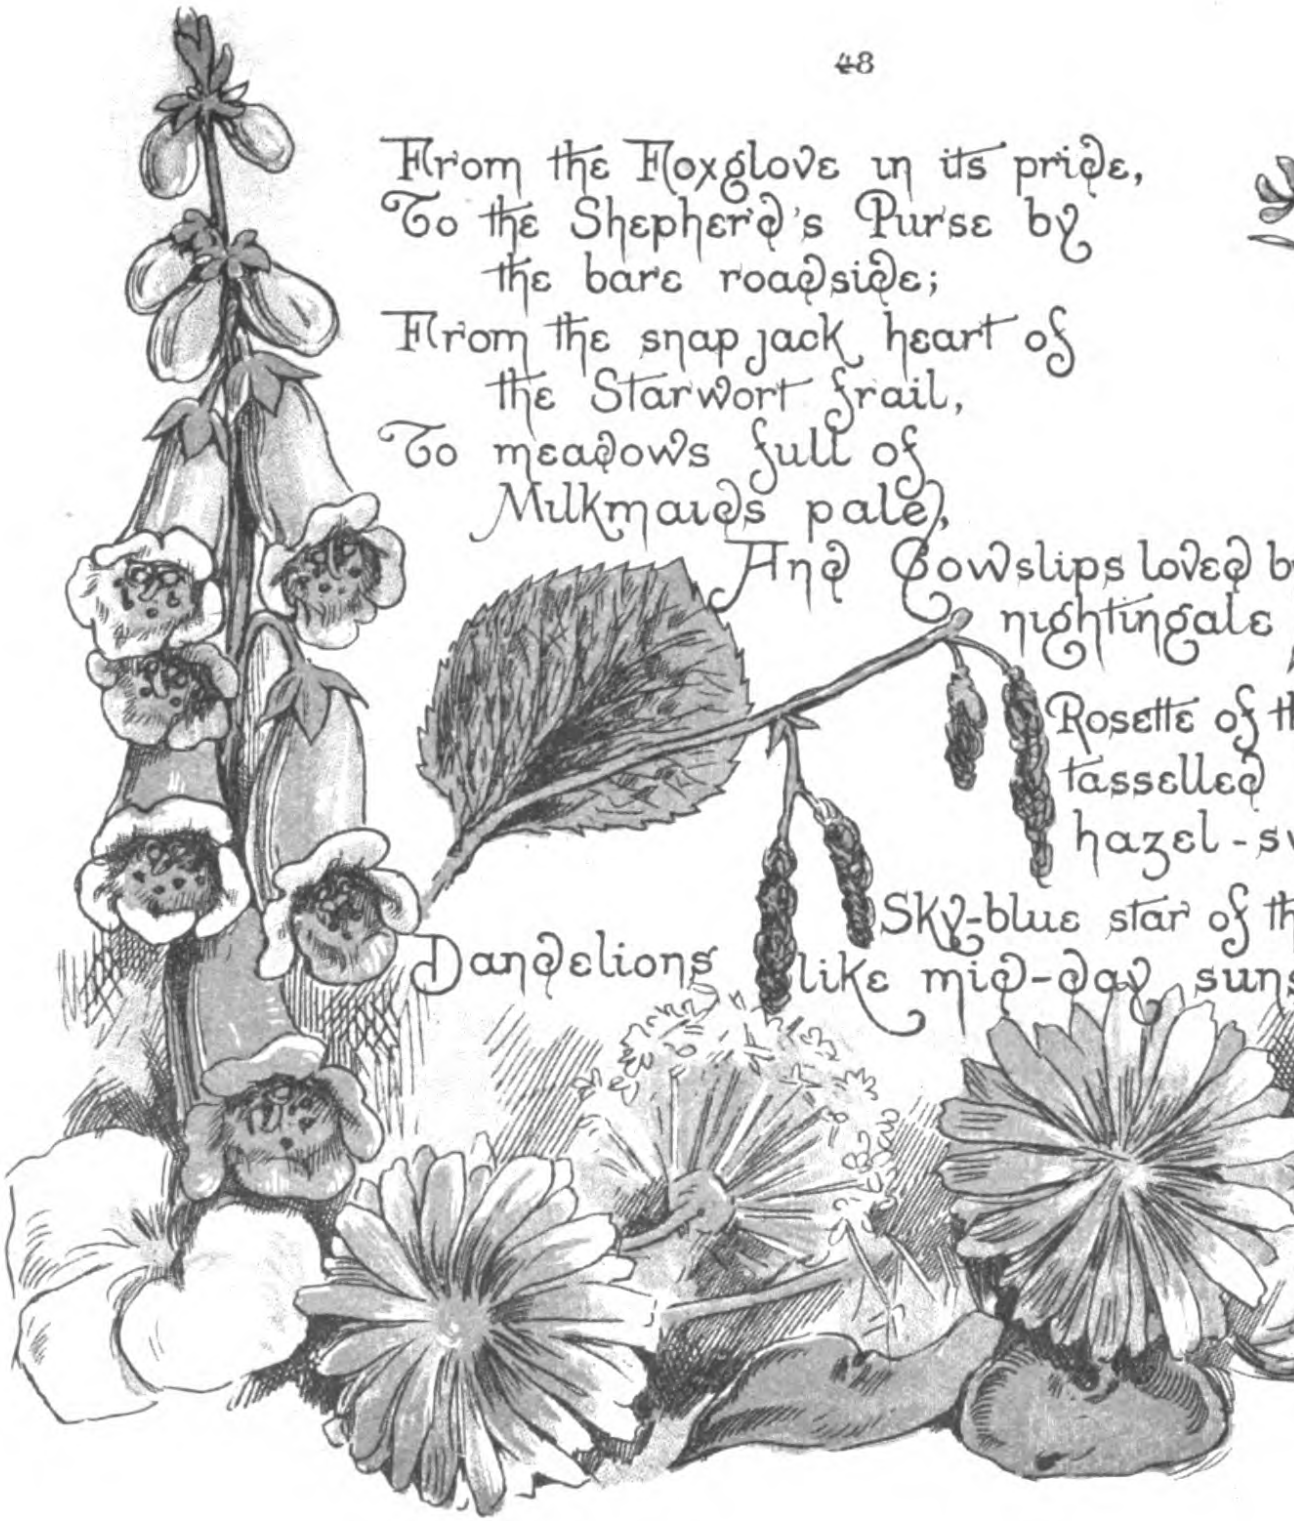 48
From the Foxglove in its pride,
To the Shepherd's Purse by
the bare roadside;
From the snap jack heart of
the Starwort frail,
To meadows full of
Milkmaids pale,
And Cowslips loved
nightingale
Rosette of
tasselled
hazel-
Sky-blue star of
Dandelions like mid-day suns